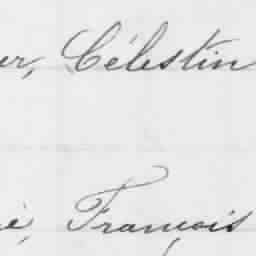 er, Célestin
é, François